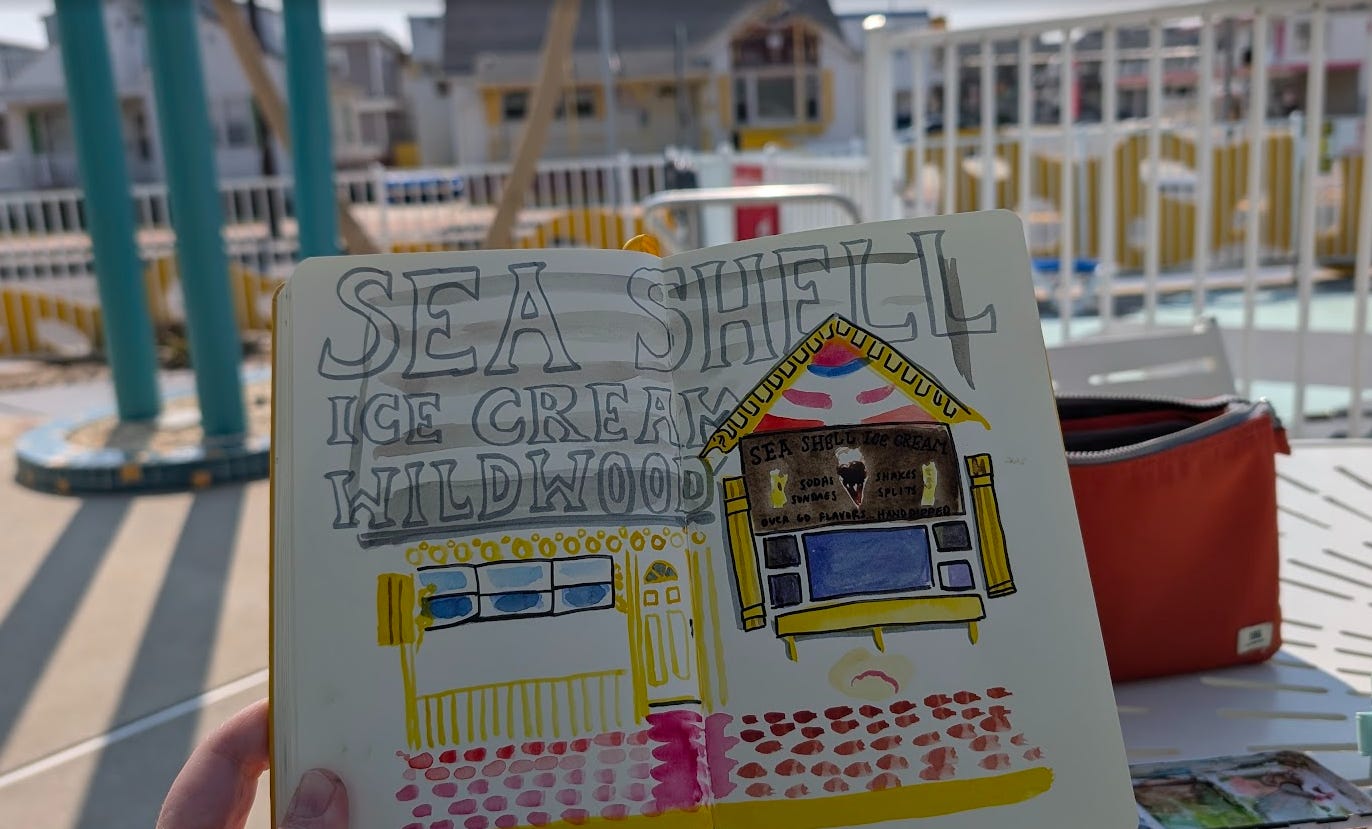 SEA SHELL
ICE CREAM
WILDWOOD
SEA SHELL ICE CREAM
SODAS SHAKES
SUNDAES SPLITS
OVER 60 FLAVORS HANDDIPPED